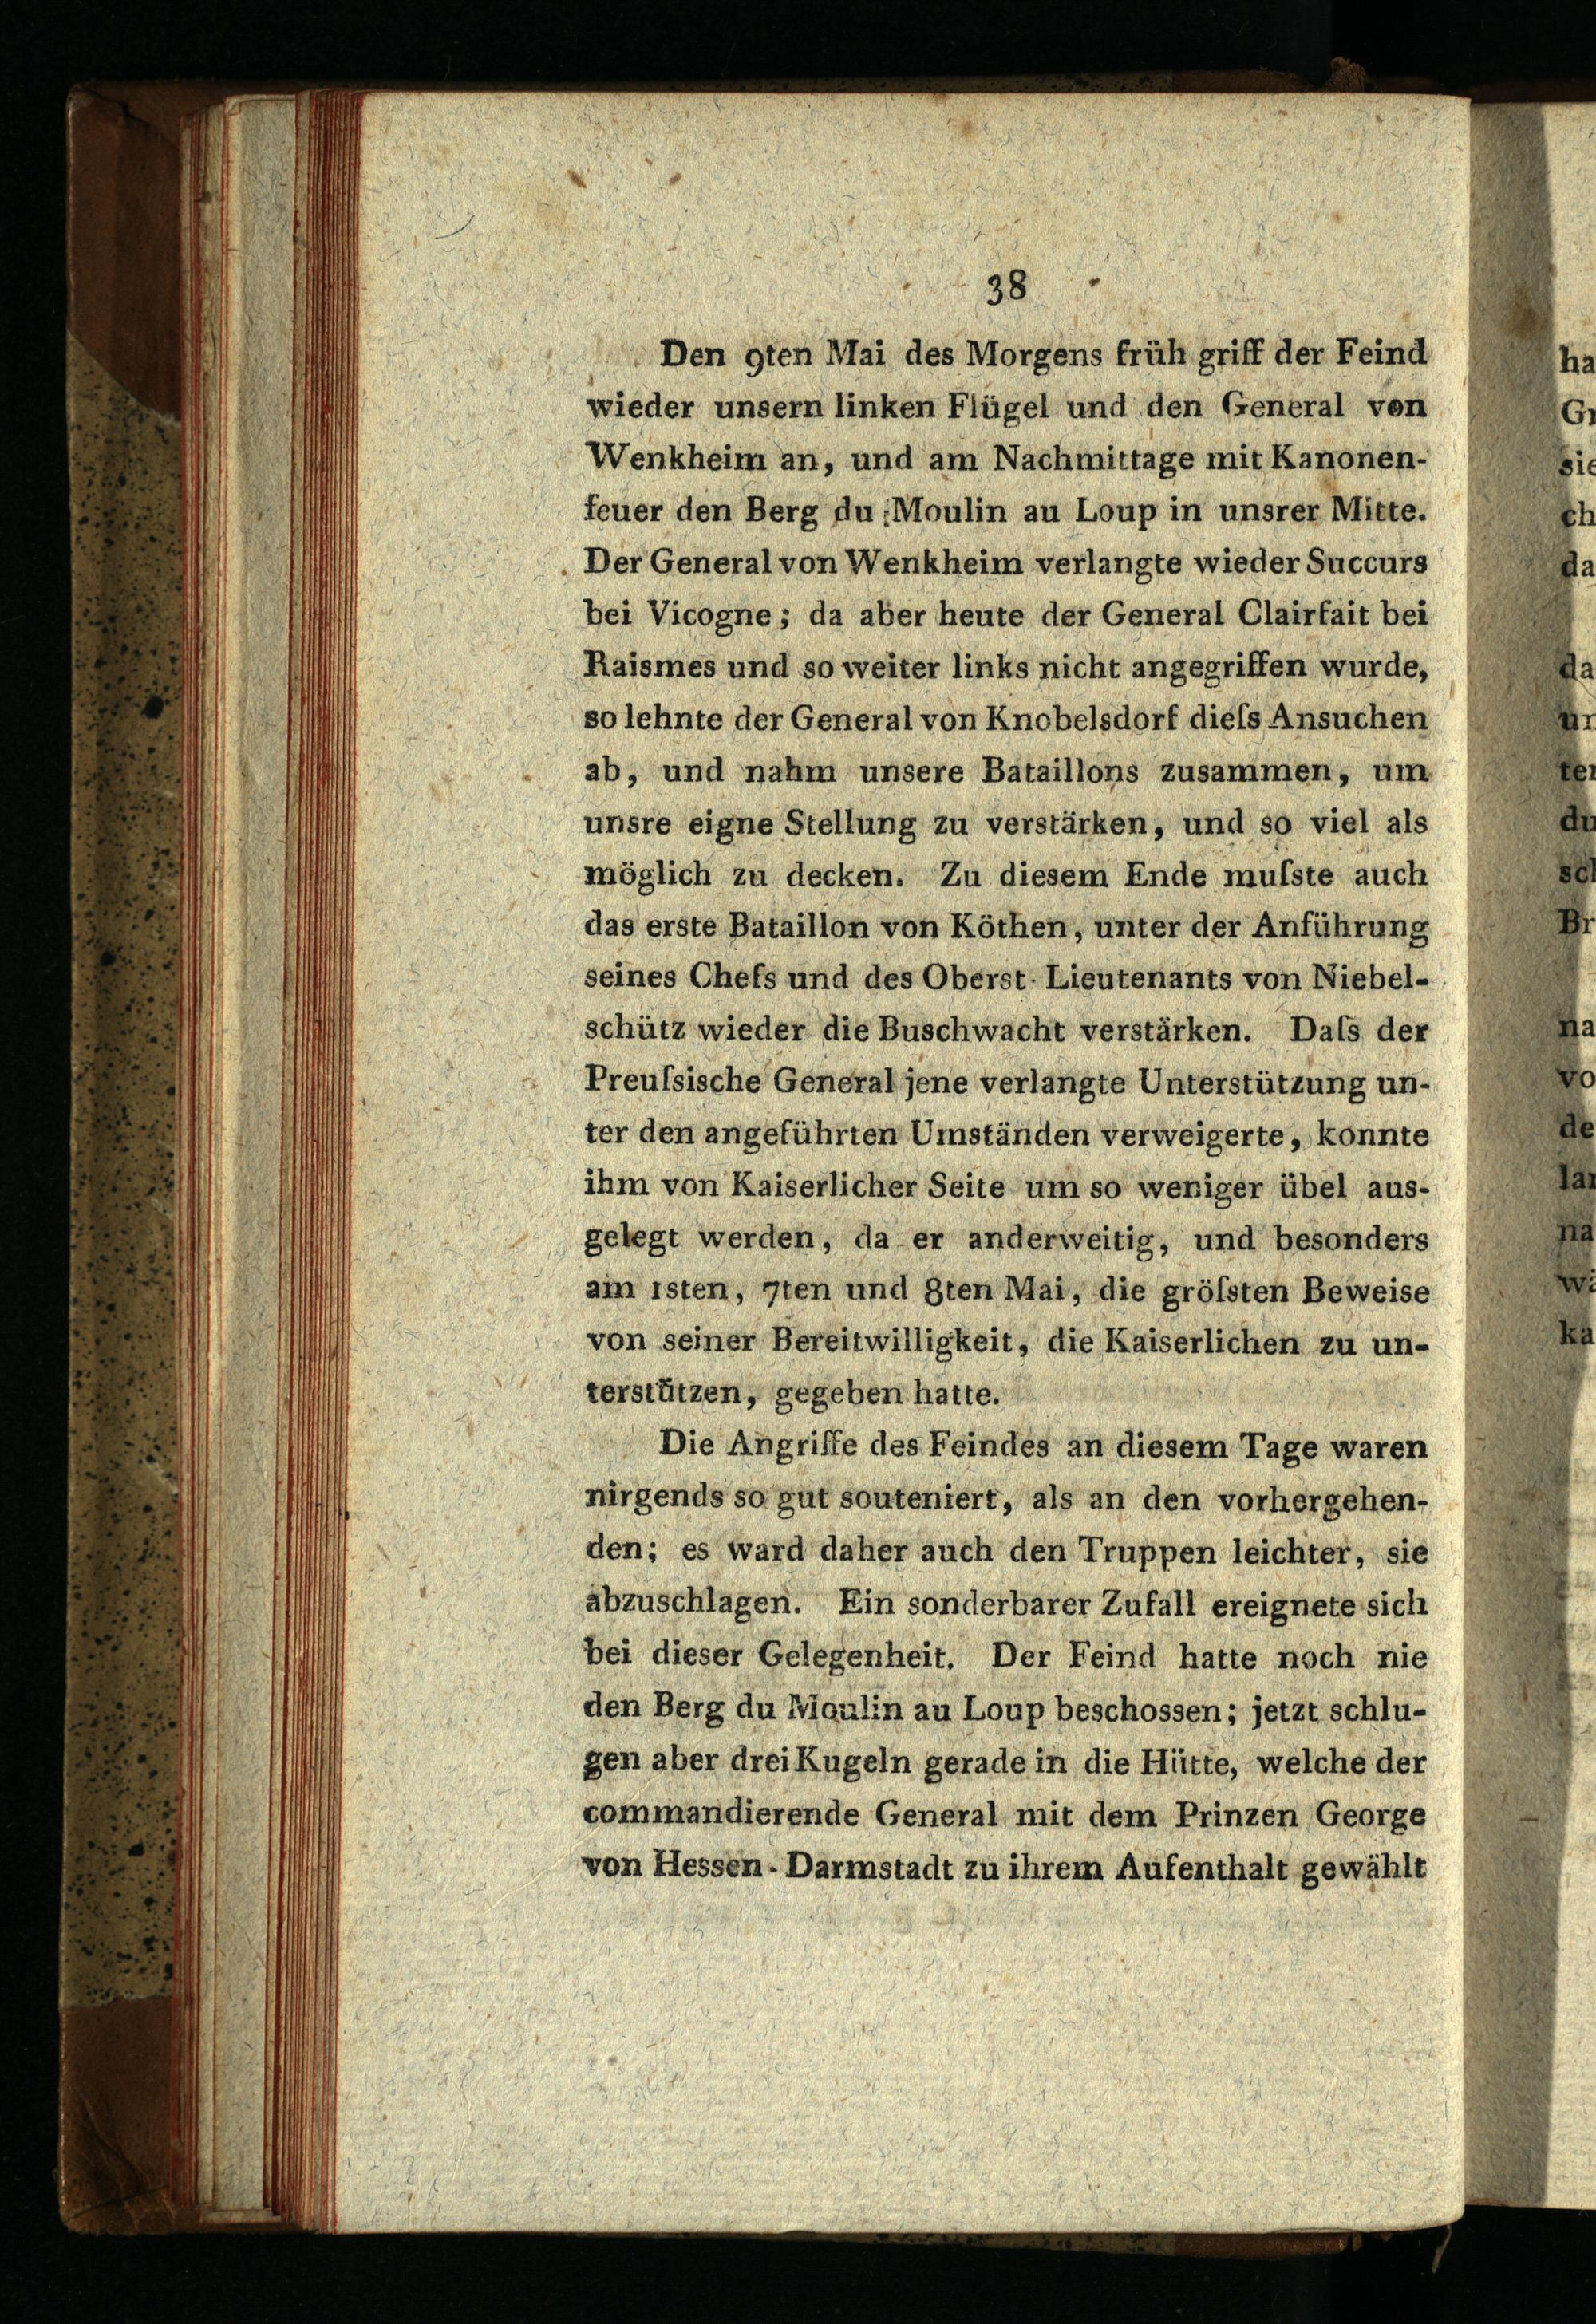 38
Den 9ten Mai des Morgens früh griff der Feind
wieder unsern linken Flügel und den General von
Wenkheim an, und am Nachmittage mit Kanonen-
feuer den Berg du Moulin au Loup in unsrer Mitte.
Der General von Wenkheim verlangte wieder Succurs
bei Vicogne; da aber heute der General Clairfait bei
Raismes und so weiter links nicht angegriffen wurde,
so lehnte der General von Knobelsdorf dieſs Ansuchen
ab, und nahm unsere Bataillons zusammen, um
unsre eigne Stellung zu verstärken, und so viel als
möglich zu decken. Zu diesem Ende muſste auch
das erste Bataillon von Köthen, unter der Anführung
seines Chefs und des Oberst-Lieutenants von Niebel-
schütz wieder die Buschwacht verstärken. Daſs der
Preuſsische General jene verlangte Unterstützung un-
ter den angeführten Umständen verweigerte, konnte
ihm von Kaiserlicher Seite um so weniger übel aus-
gelegt werden, da er anderweitig, und besonders
am 1sten, 7ten und 8ten Mai, die gröſsten Beweise
von seiner Bereitwilligkeit, die Kaiserlichen zu un-
terstützen, gegeben hatte.
Die Angriffe des Feindes an diesem Tage waren
nirgends so gut souteniert, als an den vorhergehen-
den; es ward daher auch den Truppen leichter, sie
abzuschlagen. Ein sonderbarer Zufall ereignete sich
bei dieser Gelegenheit. Der Feind hatte noch nie
den Berg du Moulin au Loup beschossen; jetzt schlu-
gen aber drei Kugeln gerade in die Hütte, welche der
commandierende General mit dem Prinzen George
von Hessen-Darmstadt zu ihrem Aufenthalt gewählt